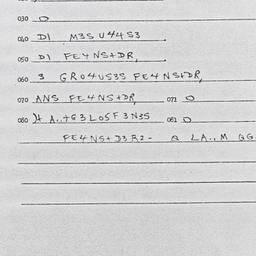 030 O
040 DI M3S U44S3
050 DI FE4NS+DR,
060 3 GRO4US3S FE4NS+DR,
070 ANS FE4NS+DR, 071 O
080 J4 A..+G3LOSF3N3S 081 O
FE4NS+D3R2- Q LA.,M GG